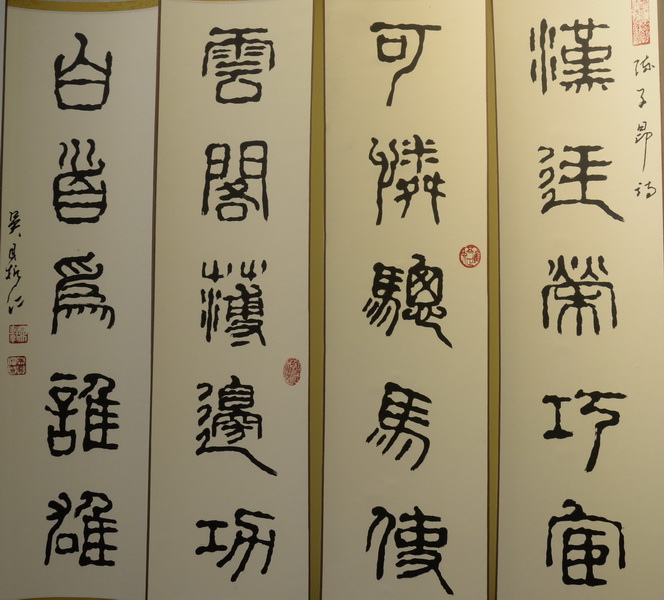 陳子昂詩
漢廷榮巧宦
可憐驄馬使
雲閣薄邊功
白首爲誰雄